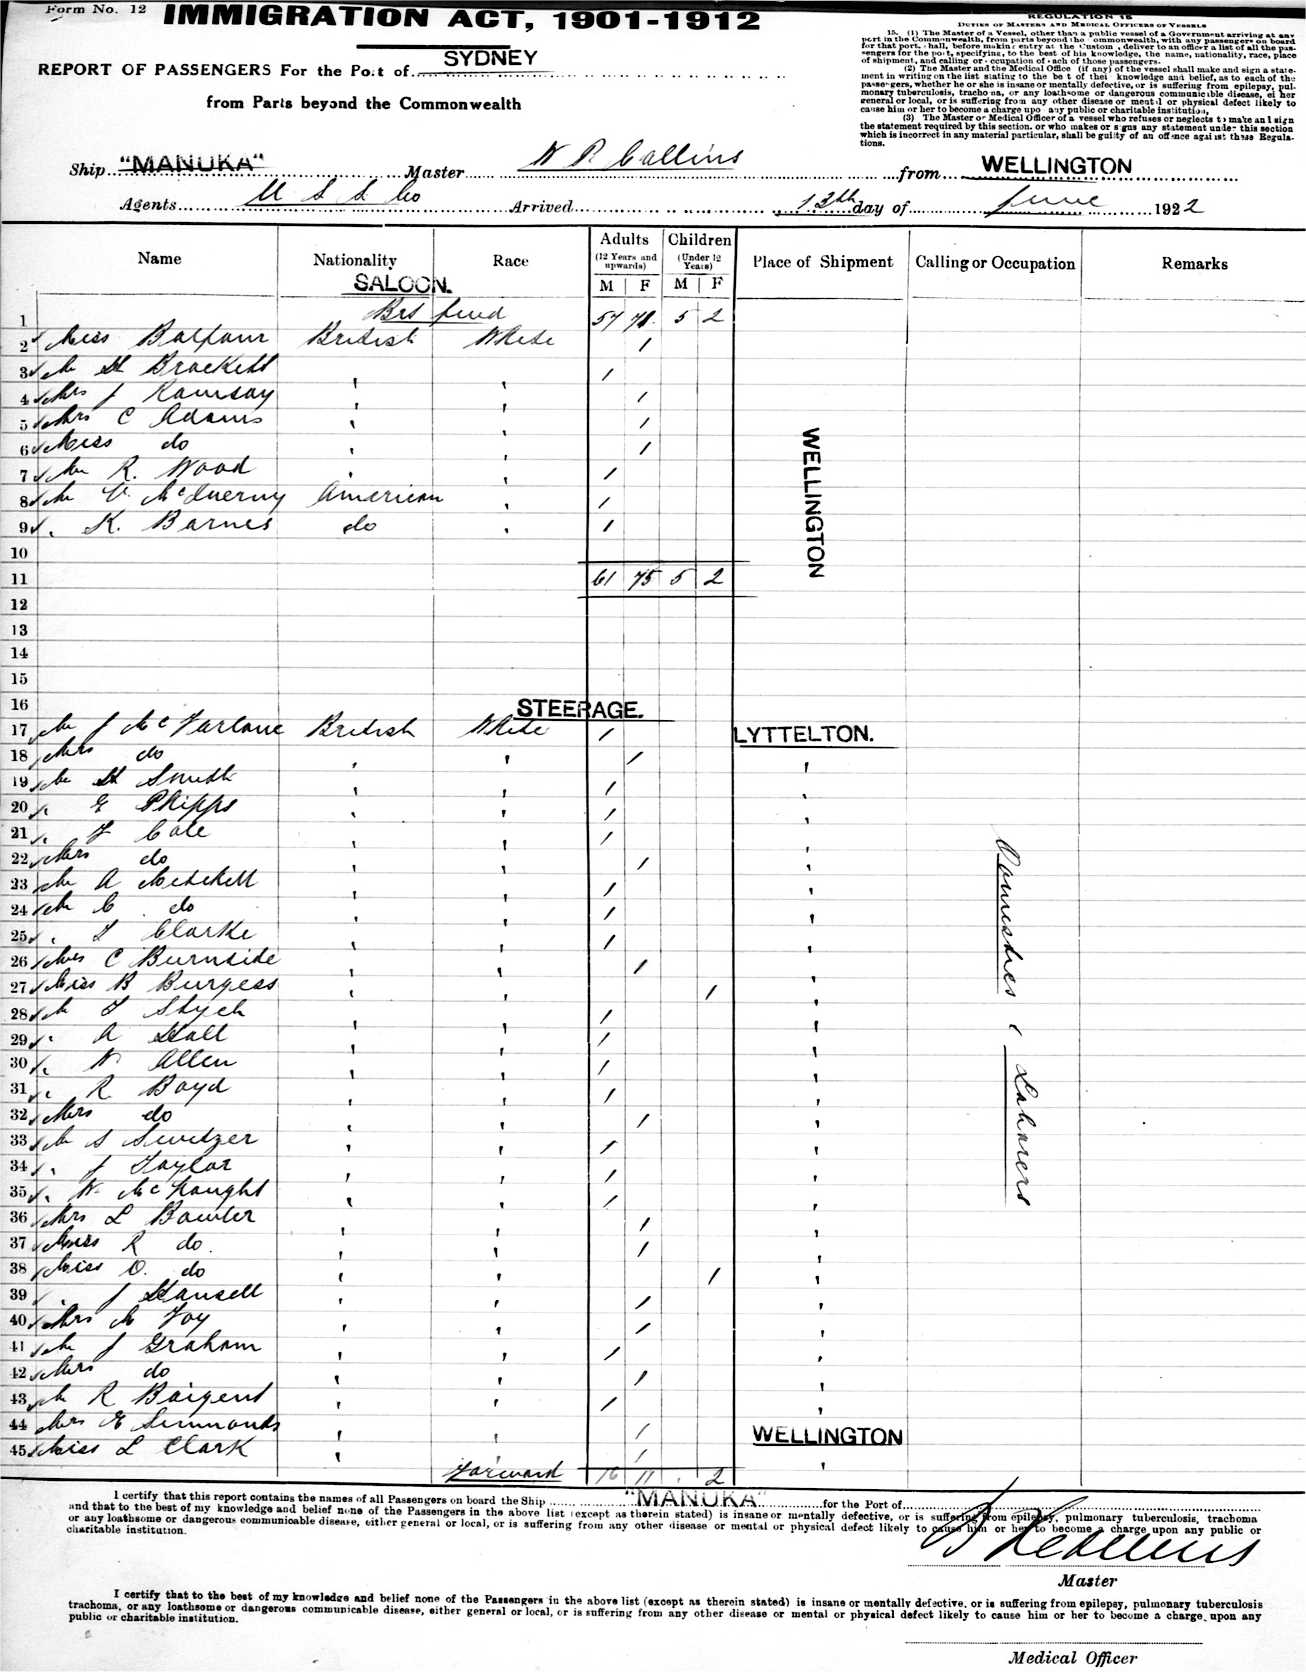 Form No. 12
IMMIGRATION ACT, 1901-1912
REGULATION 15
DUTIES OF MASTERS AND MEDICAL OFFICERS OF VESSELS
15. (1) The Master of a Vessel, other than a public vessel of a Government arriving at any
port in the Commonwealth, from parts beyond the Commonwealth, with any passengers on board
for that port, shall, before making entry at the Customs, deliver to an officer a list of all the pas-
sengers for the port, specifying, to the best of his knowledge, the name, nationality, race, place
of shipment, and calling or occupation of each of those passengers.
(2) The Master and the Medical Officer (if any) of the vessel shall make and sign a state-
ment in writing on the list stating to the best of their knowledge and belief, as to each of the
passengers, whether he or she is insane or mentally defective, or is suffering from epilepsy, pul-
monary tuberculosis, trachoma, or any loathsome or dangerous communicable disease, either
general or local, or is suffering from any other disease or mental or physical defect likely to
cause him or her to become a charge upon any public or charitable institution.
(3) The Master or Medical Officer of a vessel who refuses or neglects to make and sign
the statement required by this section, or who makes or signs any statement under this section
which is incorrect in any material particular, shall be guilty of an offence against these Regula-
tions.
REPORT OF PASSENGERS For the Port of SYDNEY
from Parts beyond the Commonwealth
Ship "MANUKA" Master W R Collins from WELLINGTON
Agents U S S Co Arrived 13th day of June 1922
Name Nationality Race Adults (12 Years and upwards) M F Children (Under 12 Years) M F Place of Shipment Calling or Occupation Remarks
SALOON.
1 Brt fwd 57 70 5 2
2 Miss Balfour British White 1
3 Mr H Brackett ' ' 1
4 Mrs J Ramsay ' ' 1
5 Mrs C Adams ' ' 1
6 Miss do ' ' 1
7 Mr R. Wood ' ' 1
8 Mr V. McInerny American ' 1
9 " K. Barnes do ' 1
WELLINGTON
10
11 61 75 5 2
12
13
14
15
16 STEERAGE.
17 Mr J McFarlane British White 1 LYTTELTON.
18 Mrs do ' ' 1 '
19 Mr H Smith ' ' 1 '
20 " E Phipps ' ' 1 '
21 " F Cole ' ' 1 '
22 Mrs do ' ' 1 '
23 Mr A Mitchell ' ' 1 '
24 Mr C do ' ' 1 '
25 " T Clarke ' ' 1 '
26 Mrs C Burnside ' ' 1 '
27 Miss B Burgess ' ' 1 '
28 Mr T Stych ' ' 1 '
29 " A Hall ' ' 1 '
30 " W Allen ' ' 1 '
31 " R Boyd ' ' 1 '
32 Mrs do ' ' 1 '
33 Mr S Switzer ' ' 1 '
34 " J Taylor ' ' 1 '
35 " W McNaught ' ' 1 '
36 Mrs L Bowler ' ' 1 '
37 Miss R do. ' ' 1 '
38 Miss O. do ' ' 1 '
39 " J Hansell ' ' 1 '
40 Mrs M Foy ' ' 1 '
41 Mr J Graham ' ' 1 '
42 Mrs do ' ' 1 '
43 Mr R Baigent ' ' 1 '
44 Mrs E Simmonds ' ' 1 WELLINGTON
45 Miss L Clark ' ' 1 '
Domestics & Labourers
Forward 16 11 . 2
I certify that this report contains the names of all Passengers on board the Ship "MANUKA" for the Port of
and that to the best of my knowledge and belief none of the Passengers in the above list (except as therein stated) is insane or mentally defective, or is suffering from epilepsy, pulmonary tuberculosis, trachoma
or any loathsome or dangerous communicable disease, either general or local, or is suffering from any other disease or mental or physical defect likely to cause him or her to become a charge upon any public or
charitable institution.
Master
I certify that to the best of my knowledge and belief none of the Passengers in the above list (except as therein stated) is insane or mentally defective, or is suffering from epilepsy, pulmonary tuberculosis
trachoma, or any loathsome or dangerous communicable disease, either general or local, or is suffering from any other disease or mental or physical defect likely to cause him or her to become a charge upon any
public or charitable institution.
Medical Officer